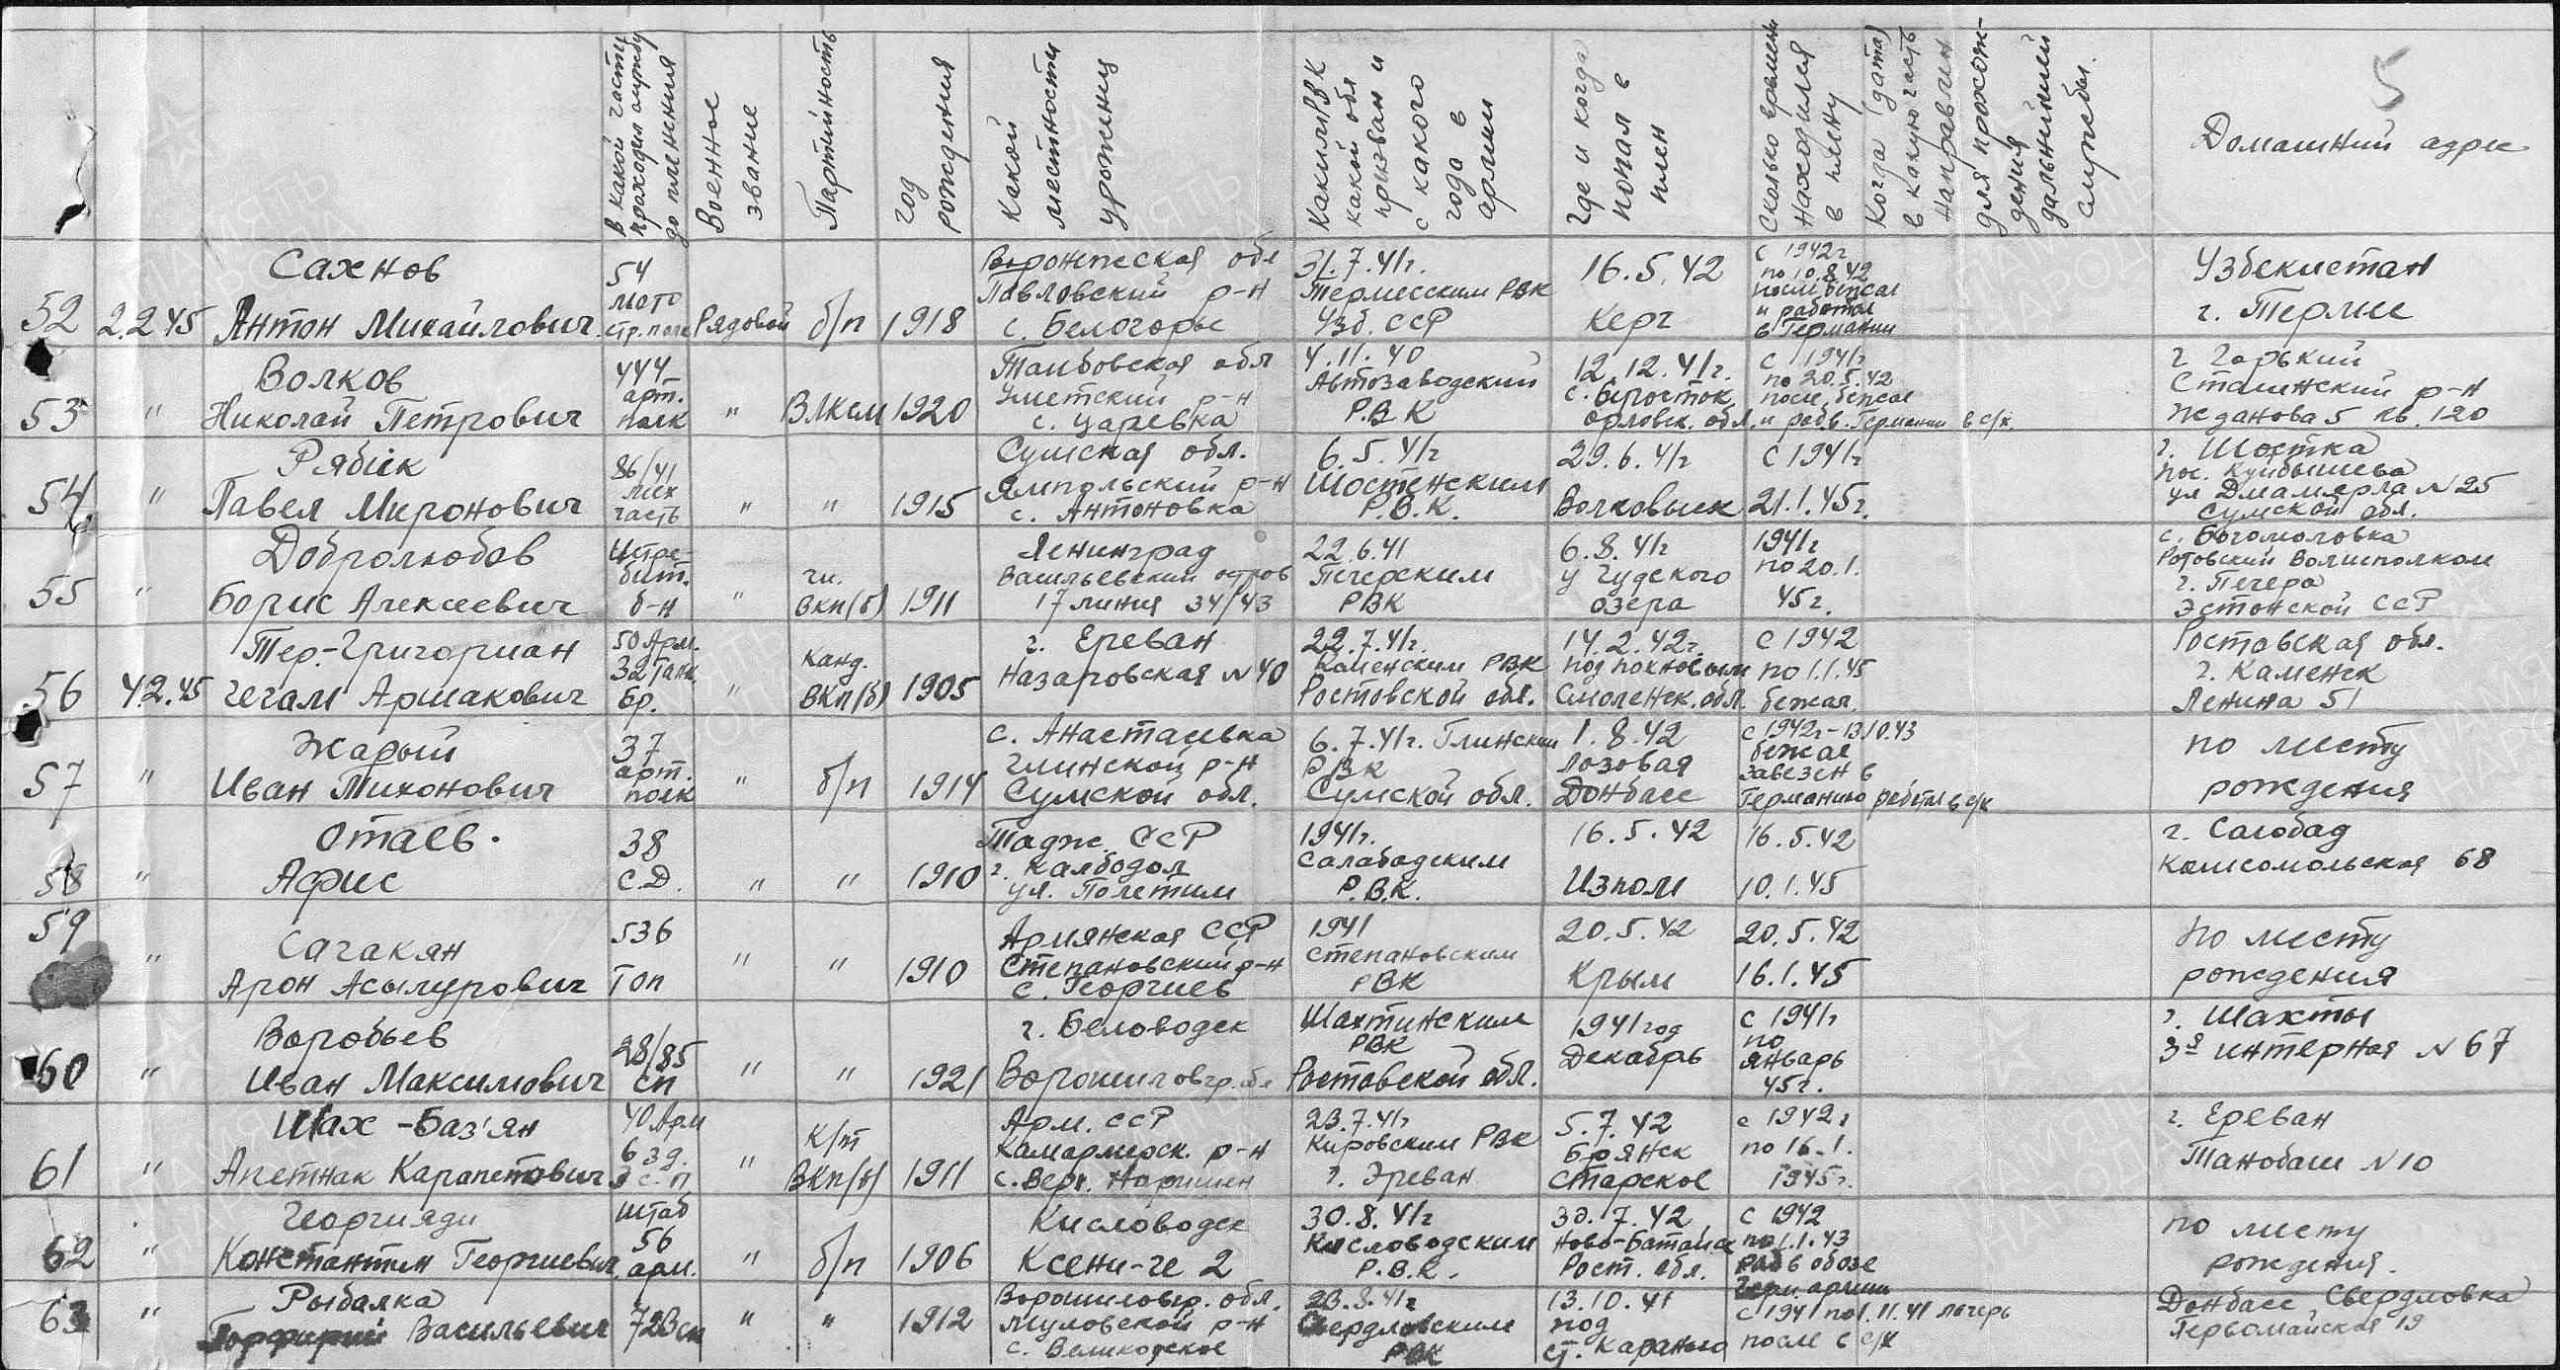 5
в какой части
проходил службу
до пленения
Военное
звание
Партийность
год
рождения
Какой
местности
урожениц
Каким РВК
какой обл
призван и
с какого
года в
армии
Где и когда
попал в
плен
Сколько времени
находился
в плену
Когда (дата)
в какую часть
направлен
для прохож-
дения
дальнейшей
службы.
Домашний адрес
52
2.2.45
Сахнов
Антон Михайлович
54
мото
стр. полк
Рядовой
б/п
1918
Воронежская обл
Павловский р-н
с. Белогорье
31.7.41г.
Термесским РВК
Узб. ССР
16.5.42
Керч
с 1942г
по 10.8.42
после бежал
и работал
в Германии
Узбекистан
г. Термес
53
"
Волков
Николай Петрович
444
арт.
полк
"
ВЛКСМ
1920
Тамбовская обл
Уметский р-н
с. Царевка
4.11.40
Автозаводский
Р.В.К
12.12.41г.
Орловск. обл.
с 1941г
по 20.5.42
после бежал
и раб в. Германии в с/х.
г Горький
Сталинский р-н
Жданова 5 кв. 120
54
"
Рябик
Павел Миронович
86/41
часть
"
"
1915
Сумская обл.
Ямпольский р-н
с. Антоновка
6.5.41г
Шостенским
Р.В.К.
29.6.41г
Волковыск
с 1941г
21.1.45г.
г. Шостка
пос. Куйбышева
ул N 25
Сумской обл.
55
"
Добролюбов
Борис Алексеевич
Истре-
бит.
б-н
"
чл.
ВКП(б)
1911
Ленинград
Васильевский остров
17 линия 34/43
22.6.41
Печерским
РВК
6.8.41г
у Чудского
озера
1941г
по 20.1.
45г.
с. Богомоловка
Волисполком
г. Печера
Эстонской ССР
56
4.2.45
Тер-Григориан
Гегам Аршакович
50 Арм.
32 Танк.
Бр.
"
Канд.
ВКП(б)
1905
г. Ереван
Назаровская N 40
22.7.41г.
Каменским РВК
Ростовской обл.
14.2.42г.
под
Смоленск. обл.
с 1942
по 1.1.45
бежал.
Ростовская обл.
г. Каменск
Ленина 51
57
"
Жарый
Иван Тихонович
37
арт.
полк
"
б/п
1914
с. Анастасевка
Глинской р-н
Сумской обл.
6.7.41г. Глинским
РВК
Сумской обл.
1.8.42
Лозовая
Донбасс
с 1942г-13.10.43
бежал
завезен в
Германию работал в с/х
по месту
рождения
58
"
Отаев.
Афис
38
С.Д.
"
"
1910
Тадж. ССР
г. Калбодол
ул. Полетим
1941г.
Салабадским
Р.В.К.
16.5.42
Изюм
16.5.42
10.1.45
г. Салобад
Комсомольская 68
59
"
Сагакян
Арон Асылурович
536
Гоп
"
"
1910
Армянская ССР
Степановский р-н
с. Георгиев
1941
Степановским
РВК
20.5.42
Крым
20.5.42
16.1.45
По месту
рождения
60
"
Воробьев
Иван Максимович
28/85
сп
"
"
1921
г. Беловодск
Ворошиловгр. обл
Шахтинским
РВК
Ростовской обл.
1941 год
Декабрь
с 1941г
по
январь
45г.
г. Шахты
3я интерная N 67
61
"
Шах-Баз'ян
Апетнак Карапетович
40 Арм
6 зд.
с.п
"
к/т
ВКП(б)
1911
Арм. ССР
Камарлерск. р-н
с. Верх.
23.7.41г
Кировским РВК
г. Эреван
5.7.42
Брянск
Старское
с 1942г
по 16.1.
1945г.
г. Ереван
Танобаш N 10
62
"
Георгияди
Константин Георгиевич
штаб
56
арм.
"
б/п
1906
Кисловодск
Ксени-ге 2
30.8.41г
Кисловодским
Р.В.К.
30.7.42
Ново-Батайск
Рост. обл.
с 1942
по 1.1.43
раб в обозе
герм. армии
по месту
рождения.
63
"
Рыбалка
Порфирий Васильевич
723 сп
"
"
1912
Ворошиловгр. обл.
р-н
23.8.41г
Свердловским
РВК
13.10.41
под
ст.
с 1941 по 1.11.41 лагерь
после в с/х
Донбасс Свердловка
Первомайская 19